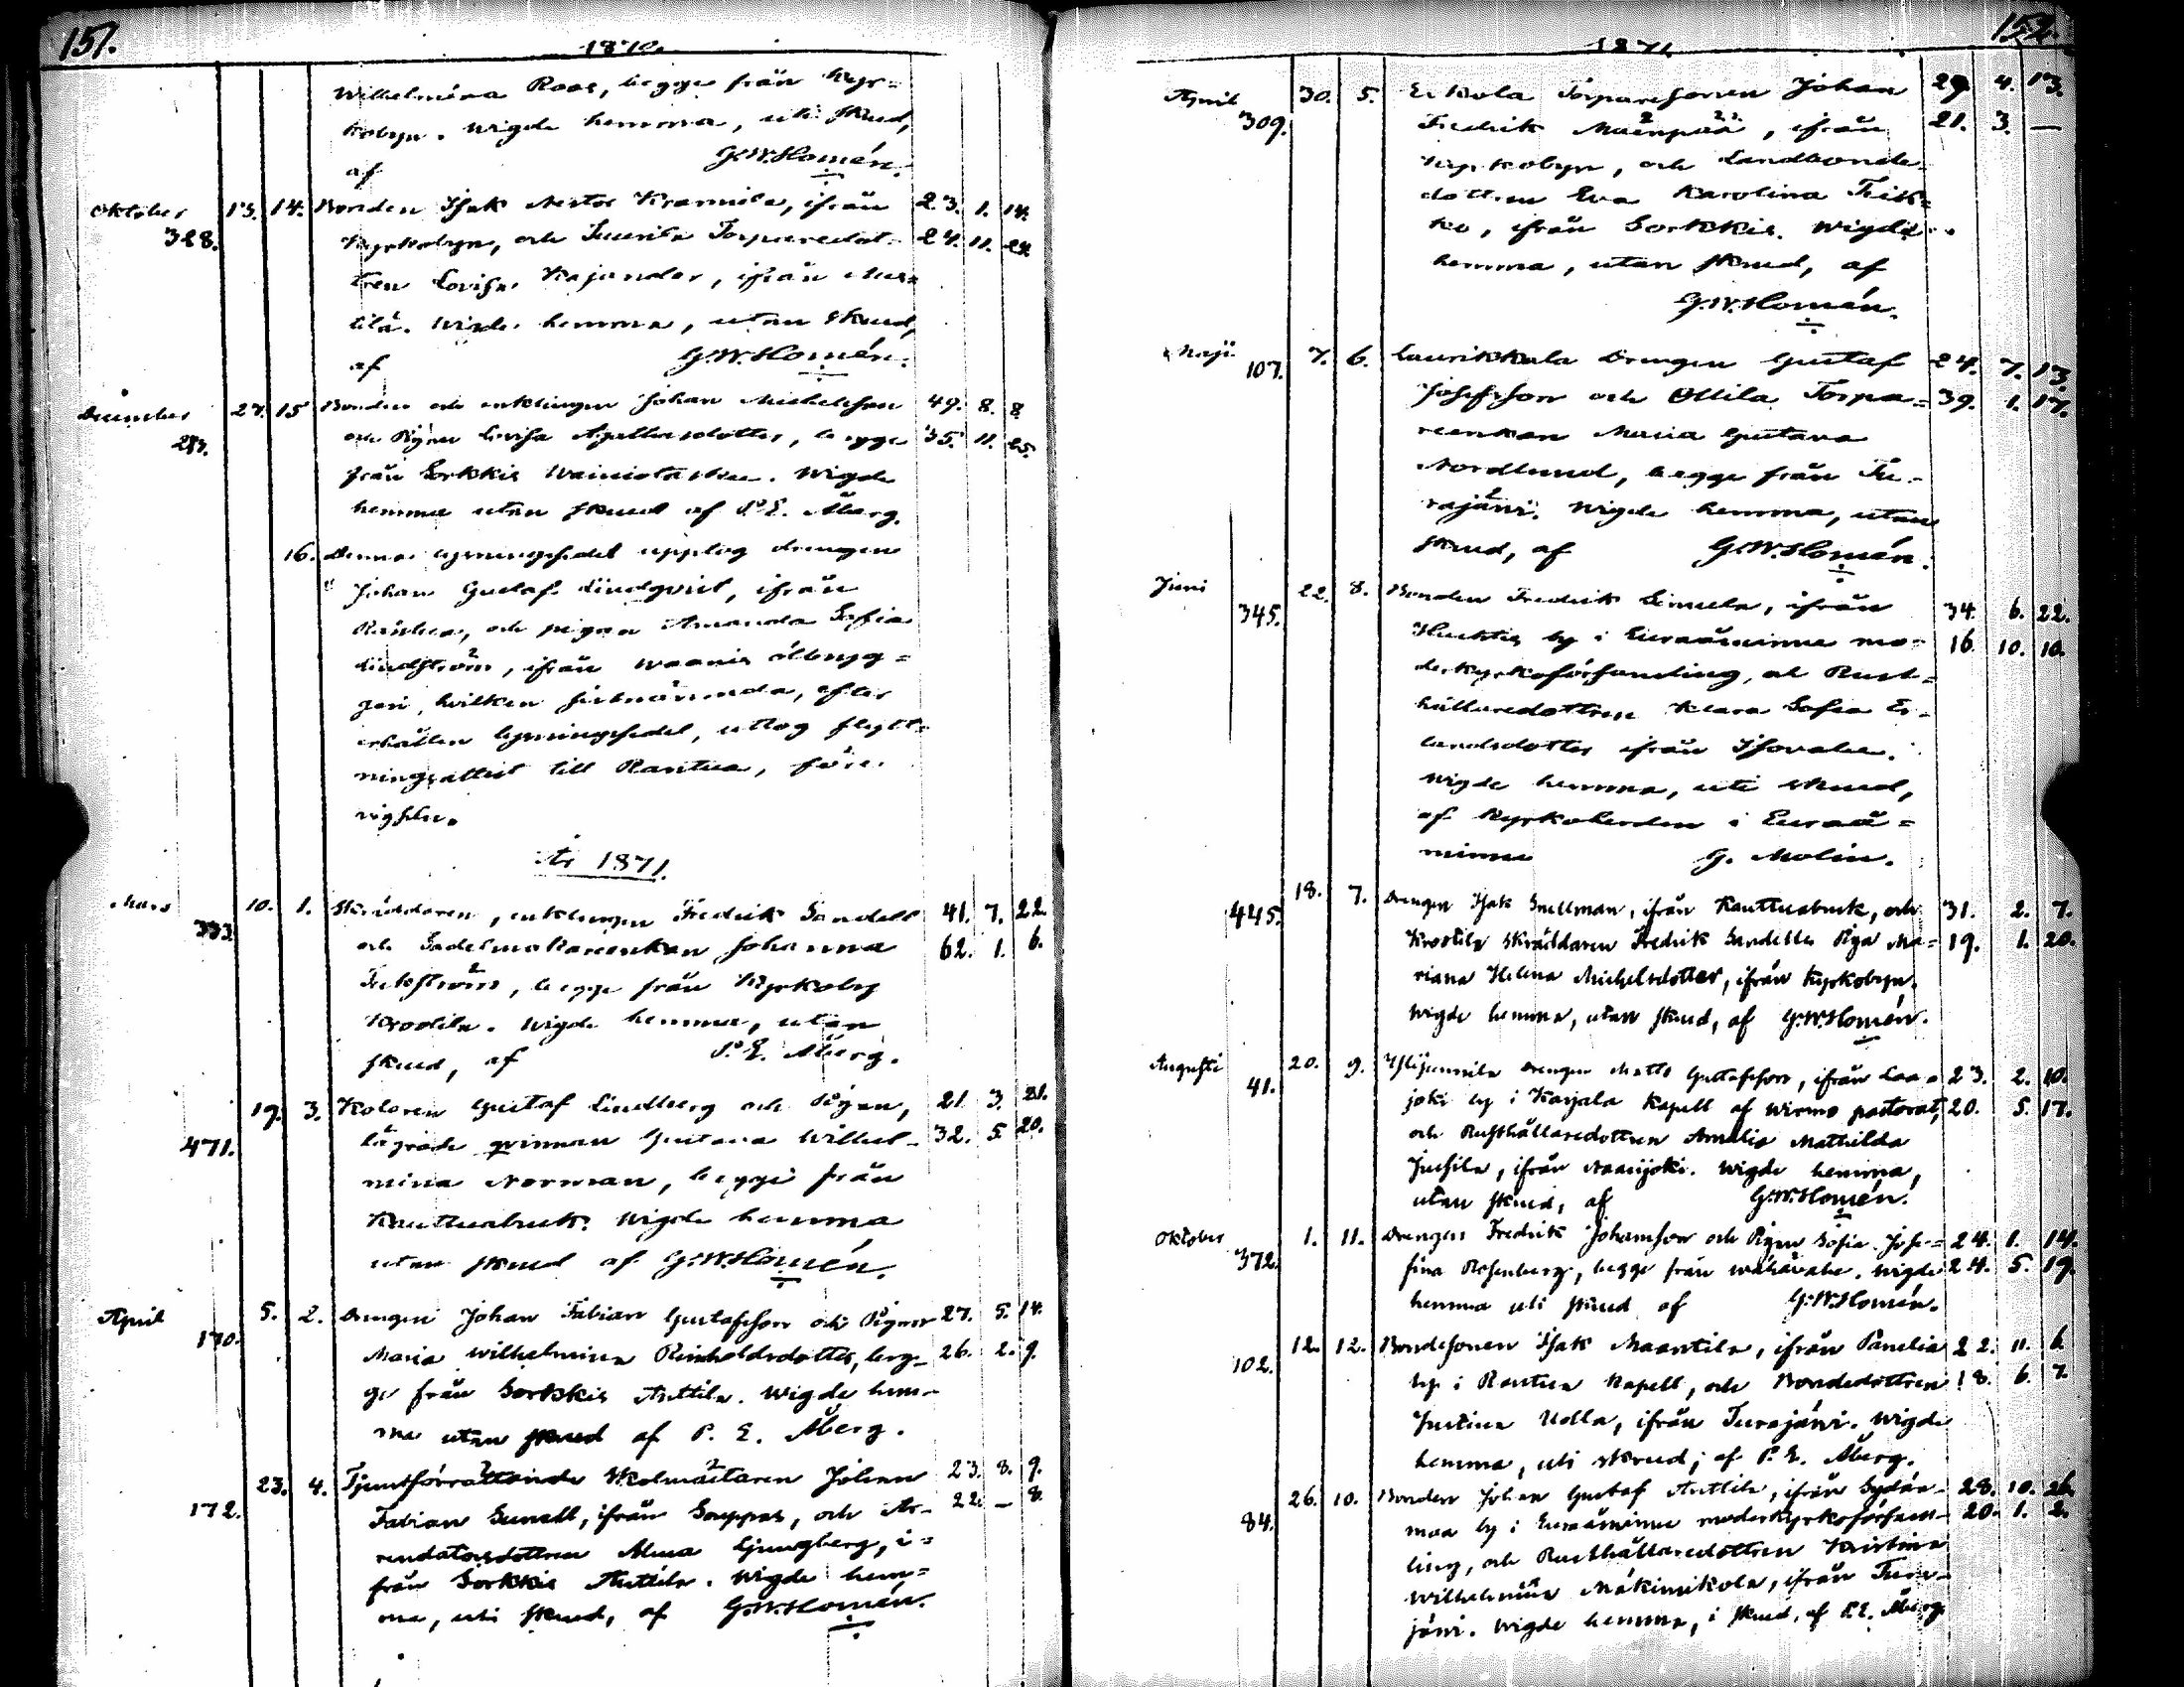 151.
1870.
Wilhelmina Roos, begge från Kyr=
kobyn. Wigde hemma, uti skrud,
af G.W. Homén.
Oktober 328. 13. 14. Bonden Isak Nestor Krannila, ifrån 23. 1. 14.
Kyrkobyn, och Torparedot- 24. 11. 24.
tren Lovisa Kajander, ifrån
Wigde hemma, utan skrud,
af G.W. Homén.
December 27. 15 Bonden och enklingen Johan Michelsson 49. 8. 8
och Pigan Lovisa begge 35. 11. 25.
från Sorkkis Wainiotalo Wigde
hemma utan skrud af P.E. Åberg.
16. Denna lysningssedel uttog drengen
Johan Gustaf Lindqvist, ifrån
och pigan Amanda Sofia
Lindström, ifrån Waanis
hvilken förbenämnda, efter
erhållen lysningssedel, uttog flytt=
ningsattest till Rantua,
År 1871.
Mars 333 10. 1. Skräddaren, enklingen Fredrik Sandell 41. 7. 22.
och Sadelmakareenkan Johanna 62. 1. 6.
begge från Kyrkoby
Krostila. Wigde hemma, utan
skrud, af P.E. Åberg.
471. 19. 3. Kolaren Gustaf Lindberg och Pigan, 21. 3. 21.
lägrade qvinnan Gustava Wilhel- 32. 5. 20.
mina Norman, begge från
Kauttuabruk. Wigde hemma
utan skrud af G.W. Homén.
April 170. 5. 2. Drengen Johan Fabian Gustafsson och Pigan 27. 5. 14.
Maria Wilhelmina Reinholdsdotter, beg- 26. 2. 9.
ge från Sorkkis Anttila. Wigde hem-
ma utan skrud af P. E. Åberg.
172. 23. 4. Tjenstförrättande Skolmästaren Johan 23. 8. 9.
Fabian Sunell, ifrån Sauppas, och Ar- 22. — 8.
rendatorsdottren Alma Ljungberg, i=
från Sorkkis Anttila. Wigde hem=
ma, uti skrud, af G.W. Homén.
152.
1871.
April 309. 30. 5. Erkola Torparesonen Johan 29. 4. 13.
Fredrik Mäenpää, ifrån 21. 3. —
Kyrkobyn, och Landbonde
dottren Eva Karolina
ko, ifrån Sorkkis. Wigde
hemma, utan skrud, af
G.W. Homén.
Maji 107. 7. 6. Laurikkala Drengen Gustaf 24. 7. 13.
Josefsson och Ollila Torpa= 39. 1. 17.
reenkan Maria Gustava
Nordlund, begge från Tu-
rajärvi. Wigde hemma, utan
skrud, af G.W. Homén.
Juni 345. 22. 8. Bonden Fredrik Simula, ifrån 34. 6. 22.
Huhtis by i Euraåminne mo= 16. 10. 10.
derkyrkoförsamling, och Rust=
hållaredottren Klara Sofia Er-
landsdotter ifrån Isovahe.
Wigde hemma, uti skrud,
af Kyrkoherden i Euraå=
minne G. Molin.
445. 18. 7. Drengen Isak Snellman, ifrån Kauttuabruk, och 31. 2. 7.
Krostila Skräddaren Fredrik Sandells Piga Ma= 19. 1. 20.
riana Helena Michelsdotter, ifrån Kyrkobyn.
Wigde hemma, utan skrud, af G.W. Homén.
Augusti 41. 20. 9. Ylijunnila Drengen Matts Gustafsson, ifrån Laa= 23. 2. 10.
joki by i Karjala Kapell af Wirmo pastorat, 20. 5. 17.
och Rusthållaredottren Amalia Mathilda
Jussila, ifrån Naarijoki. Wigde hemma,
utan skrud, af G.W. Homén.
Oktober 372. 1. 11. Drengen Fredrik Johansson och Pigan Sofia Jose= 24. 1. 14.
fina Rosenberg, begge från Wähävahe. Wigde 24. 5. 19.
hemma uti skrud af G.W. Homén.
102. 12. 12. Bondesonen Isak Maantila, ifrån Panelia 22. 11. 6
by i Kapell, och Bondedottren 18. 6. 7.
Justina Uolla, ifrån Turajärvi. Wigde
hemma, uti skrud, af P. E. Åberg.
84. 26. 10. Bonden Johan Gustaf Anttila, ifrån Sydän- 28. 10. 26.
maa by i Euraåminne moderkyrkoförsam- 20. 1. 2.
ling, och Rusthållaredottren Kristina
Wilhelmina Mäkimikola, ifrån Tura-
järvi. Wigde hemma, i skrud, af P.E. Åberg